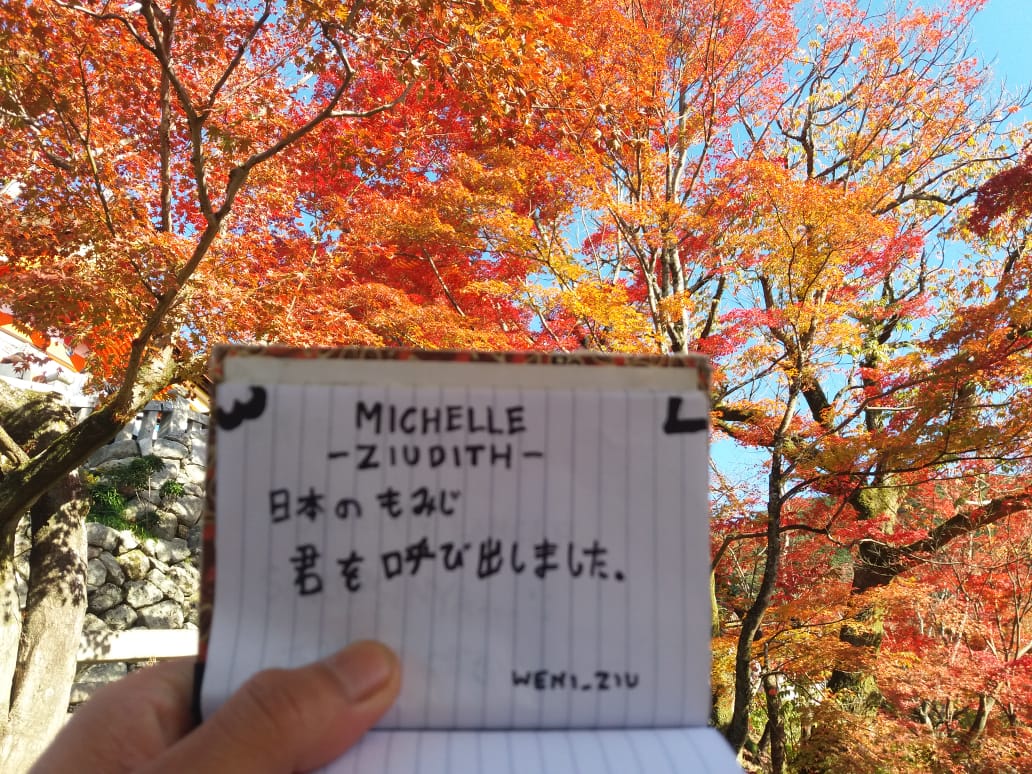 MICHELLE
-ZIUDITH-
日本のもみじ
君を呼び出しました。
WENI_ZIU